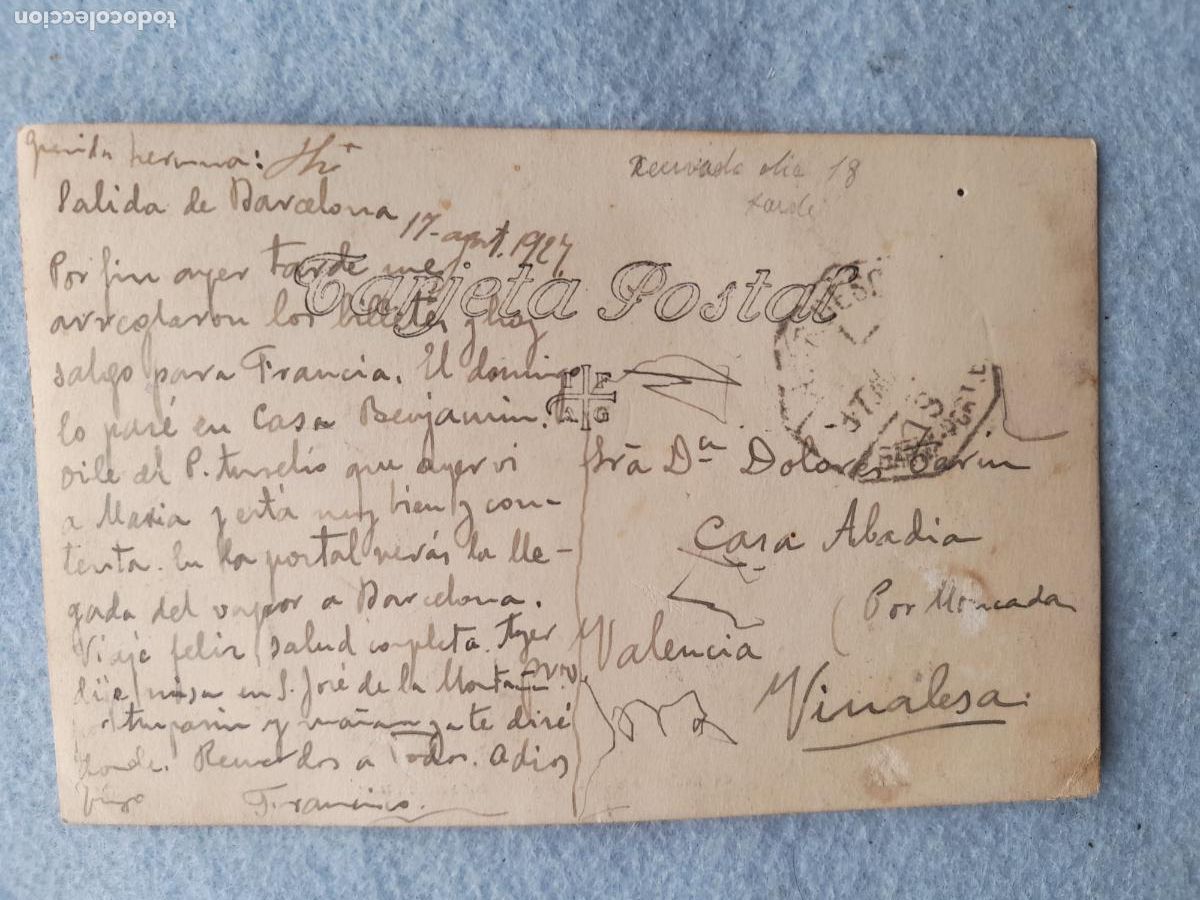 todocoleccion
Querida hermana:
Salida de Barcelona
17-agost. 1927
Por fin ayer tarde me
arreglaron los billetes y hoy
salgo para Francia. El domingo
lo pasé en casa Benjamin.
Dile al P. Aurelio que ayer vi
a Maria y está muy bien y con-
tenta. En la postal verás la lle-
gada del vapor a Barcelona.
Viaje feliz, salud completa. Ayer
dije misa en S. José de la Montaña
y mañana ya te diré
donde. Recuerdos a Todos. Adios
Francisco.
Tarjeta Postal
recivida dia 18
tarde
Sra Dª Dolores Marin
Casa Abadia
(Por Moncada
Valencia
Vinalesa.